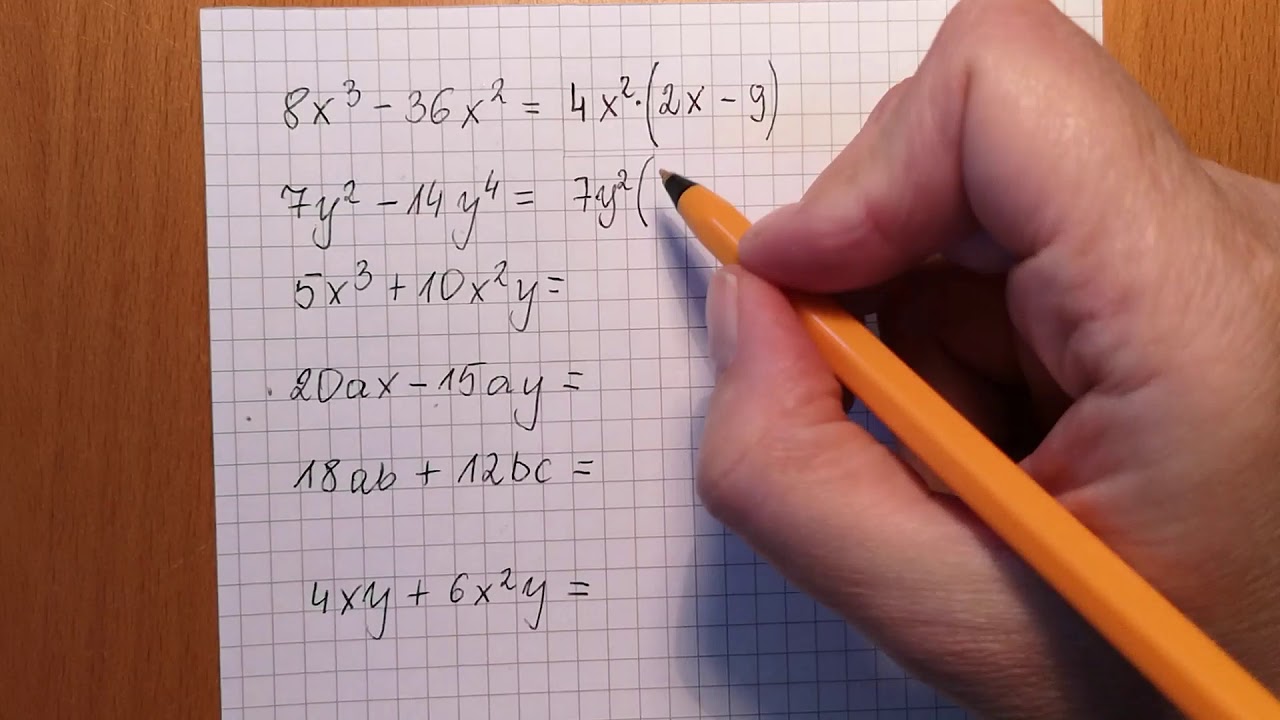 8x³ - 36x² = 4x²·(2x - 9)
7y² - 14y⁴ = 7y²(
5x³ + 10x²y =
20ax - 15ay =
18ab + 12bc =
4xy + 6x²y =